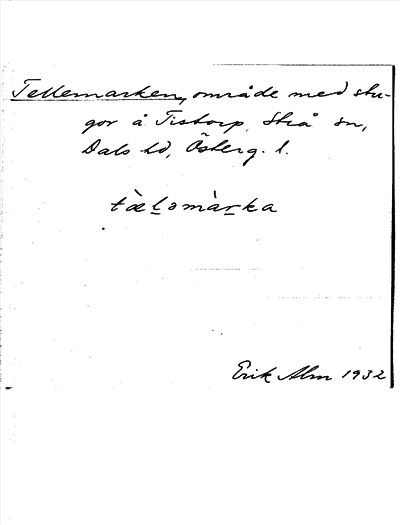 Tellemarken, område med stu-
gor å Tistorp, Strå sn,
Dals hd, Österg. l.
tæ̀lǝmàrka
Erik Alm 1932